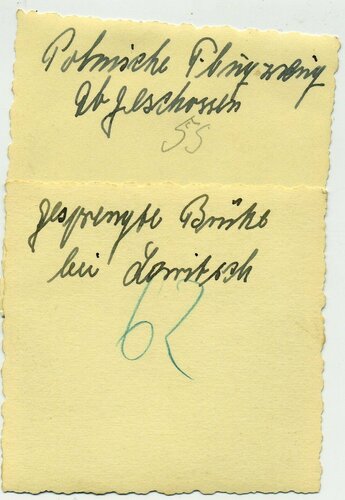 Polnische Flugzeug
Abgeschossen
55
gesprengte Brücke
bei Lowitsch
62